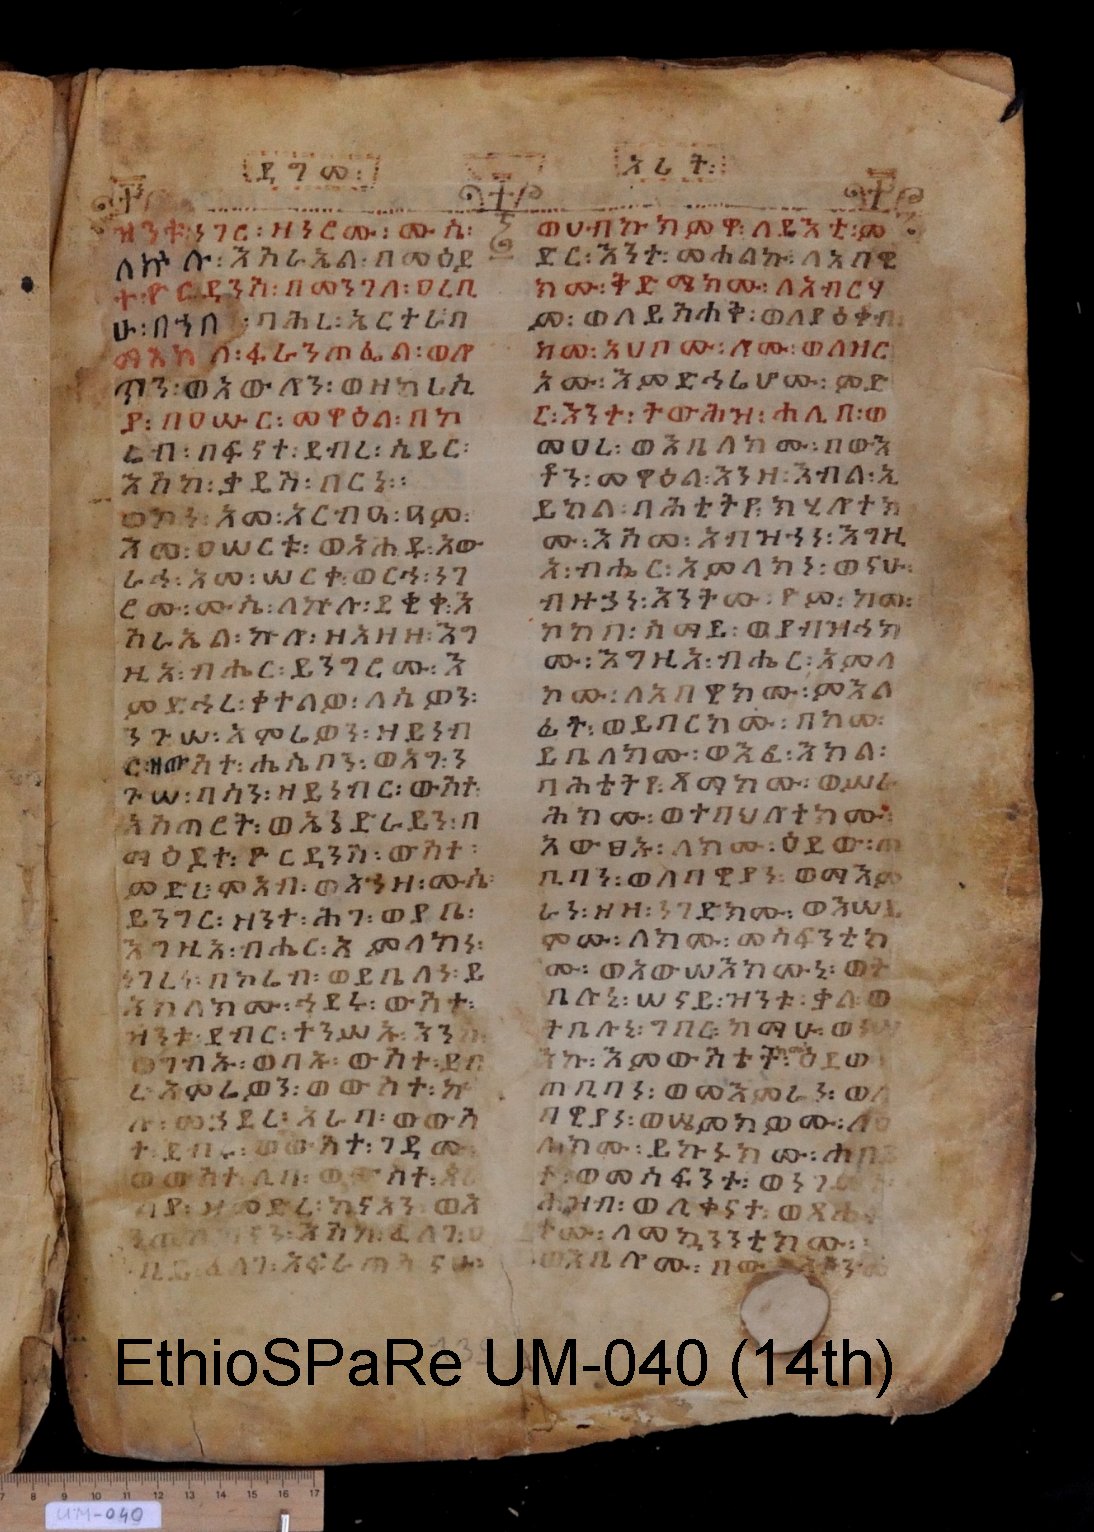 ዳግመ፡
አሪት፡
ዝንቱ፡ነገር፡ዘነገረ፡ሙሴ፡
ለኵሉ፡እስራኤል፡በመዕደ
ተ፡ዮርዳንስ፡በመንገለ፡ዐረቢ
ሁ፡በኀበ፡ባሕረ፡ኤርተራበ
ማእከለ፡ፋራን፡ጠፌል፡ወሎ
ጦን፡ወአውሎን፡ወዘካሪሲ
ያ፡በዐሡር፡መዋዕል፡በኮ
ሬብ፡በፍኖተ፡ደብረ፡ሴይር፡
እስከ፡ቃዴስ፡በርኔ፡
ወኮነ፡አመ፡አርብዓ፡ዓም፡
አመ፡ዐሠርቱ፡ወአሐዱ፡አው
ራኅ፡አመ፡ሠርቀ፡ወርኅ፡ነገ
ሮሙ፡ሙሴ፡ለኵሉ፡ደቂቀ፡እ
ስራኤል፡ኵሉ፡ዘአዘዘ፡እግ
ዚአ፡ብሔር፡ይንግሮሙ፡እ
ምድኅረ፡ቀተልዎ፡ለሴዎን፡
ንጉሠ፡አሞሬዎን፡ዘይነብ
ር፡ውስተ፡ሐሴቦን፡ወአግ፡ን
ጉሠ፡ባሳን፡ዘይነብር፡ውስተ፡
አስጠሮት፡ወኤንድራይን፡በ
ማዕዶተ፡ዮርዳንስ፡ውስተ፡
ምድረ፡ሞአብ፡ወአኀዘ፡ሙሴ፡
ይንግር፡ዝንተ፡ሕገ፡ወይቤ፡
እግዚአ፡ብሔር፡አምላክነ፡
ነገረነ፡በኮሬብ፡ወይቤለነ፡ይ
እክለክሙ፡ኀዲሩ፡ውስተ፡
ዝንቱ፡ደብር፡ተንሥኡ፡እን
ወግብኡ፡ወባኡ፡ውስተ፡ደብ
ረ፡አሞሬዎን፡ወውስተ፡ኵ
ሉ፡መኃድረ፡አራባ፡ውውስ
ተ፡ደብር፡ወውስተ፡ገዳም፡
ወውስተ፡ሊባ፡ወውስተ፡ጳራ
ልያ፡ዝምድረ፡ከናአን፡ወአ
እስከ፡ፈለግ፡
ፈለግ፡ኤፍራጠስ
ወሀብኩክምዋ፡ለይእቲ፡ም
ድር፡እንተ፡መሐልኩ፡ለአበዊ
ክሙ፡ትድሜክሙ፡ለአብርሃ
ም፡ወለይስሐቅ፡ወለያዕቆብ፡
ከመ፡አሀቦሙ፡ሎሙ፡ወለዘር
አሙ፡እምድኅሬሆሙ፡ምድ
ር፡እንተ፡ትውሕዝ፡ሐሊበ፡ወ
መዐረ፡ወእቤለክሙ፡በውእ
ቶን፡መዋዕል፡እንዘ፡እብል፡ኢ
ይክል፡ባሕቲትየ፡ክሂሎተክ
ሙ፡እስመ፡አብዝኀነ፡እግዚ
አ፡ብሔር፡አምላክነ፡ወናሁ፡
ብዙኃነ፡አንትሙ፡ዮም፡ከመ፡
ኮከበ፡ሰማይ፡ወያብዝኅክ
ሙ፡እግዚአ፡ብሔር፡አምላ
ክሙ፡ለአበዊክሙ፡ምእል
ፊት፡ወይባርክሙ፡በከመ፡
ይቤለክሙ፡ወእፎ፡እክል፡
ባሕቲትየ፡ጻማክሙ፡ወሥራ
ሕክሙ፡ወተባህሎተክሙ፡
አውፅኡ፡ለክሙ፡ዕደው፡ጠ
ቢባን፡ወለባዊያን፡ወማእም
ራን፡ዘዘ፡ነገድክሙ፡ወእሠይ
ሞሙ፡ለክሙ፡መሳፍንቲክ
ሙ፡ወአውሣእክሙኒ፡ወት
ቤሉኒ፡ሠናይ፡ዝንቱ፡ቃል፡ወ
ትቤሉኒ፡ገበረ፡ከማሁ፡ወነሣ
እኩ፡እምውስቴትክሙ፡ዕደወ
ጠቢባነ፡ወመእምራነ፡ወለ
ባዊያነ፡ወሤምክዎሙ፡ለ
ለክሙ፡ይኩኑክሙ፡ሐበ
ተ፡ወመሳፍንተ፡ወነገ
ሕዝብ፡ወሊቃናተ፡ወጸሐፍ
ተሙ፡ለመኳንንቲክሙ፡
ወእቤሎሙ፡በው
EthioSPaRe UM-040 (14th)
7 8 9 10 11 12 13 14 15 16 17
UM-040